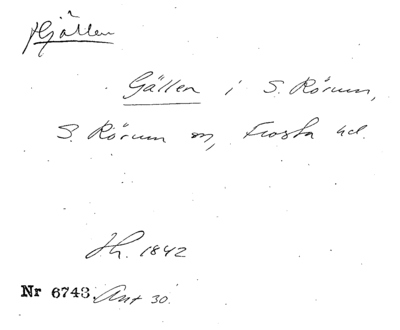 Hjällen
Gällen i S. Rörum,
S. Rörum sn, Frosta hd.
Jh. 1842
Nr 6743 Ant 30.